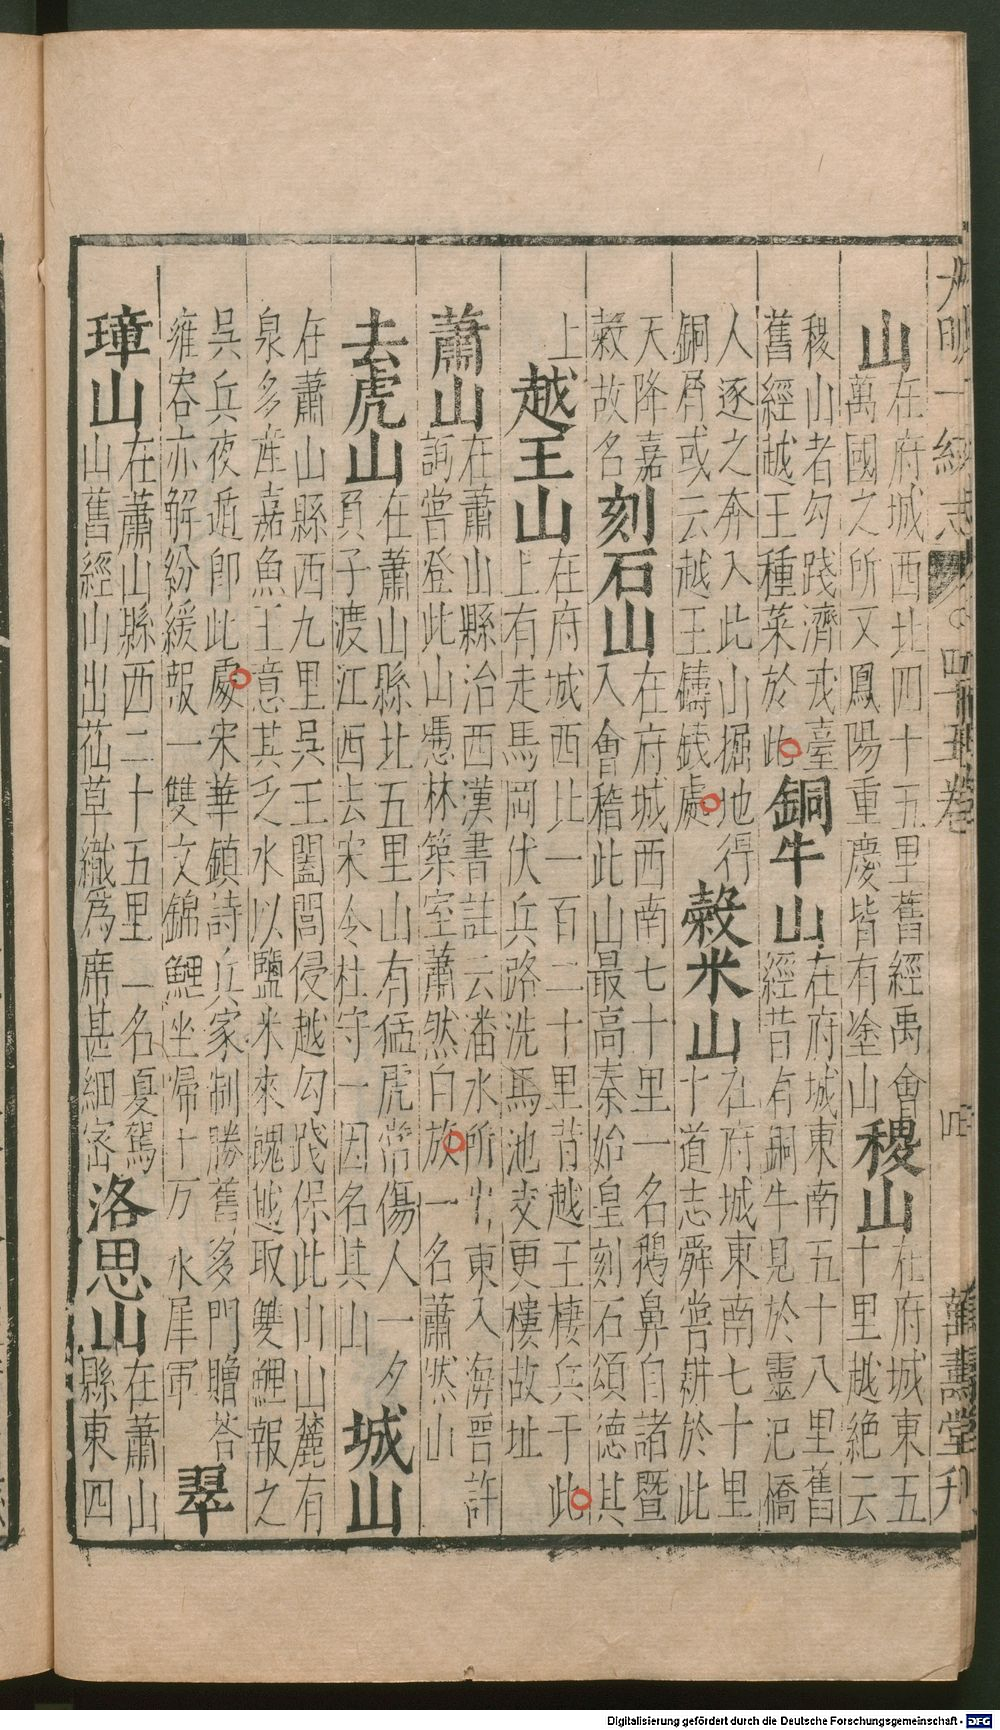 大明一統志 卷之四十五卷 四 萬壽堂刊
山 在府城西北四十五里舊經禹會
萬國之所又鳳陽重慶皆有塗山 稷山 在府城東五
十里越絕云
稷山者勾踐濟戒臺
舊經越王種菜於此 銅牛山 在府城東南五十八里舊
經昔有銅牛見於靈汜橋
人逐之奔入此山掘地得
銅屑或云越王鑄錢處 穀米山 在府城東南七十里
十道志舜嘗耕於此
天降嘉
穀故名 刻石山 在府城西南七十里一名鵝鼻自諸暨
入會稽此山最高秦始皇刻石頌德其
上 越王山 在府城西北一百二十里昔越王棲兵于此
上有走馬岡伏兵路洗馬池支更樓故址
蕭山 在蕭山縣治西漢書註云潘水所出東入海晉許
詢嘗登此山憑林築室蕭然自放一名蕭然山
去虎山 在蕭山縣北五里山有猛虎常傷人一夕
負子渡江西去宋令杜守一因名其山 城山
在蕭山縣西九里吳王闔閭侵越勾踐保此山山麓有
泉多產嘉魚王意其乏水以鹽米來餽越取雙鯉報之
吳兵夜遁即此處宋華鎮詩兵家制勝舊多門贈答
雍容亦解紛緩報一雙文錦鯉坐歸十万水犀軍 翠
嶂山 在蕭山縣西二十五里一名夏駕
山舊經山出莎草織為席甚細密 洛思山 在蕭山
縣東四
Digitalisierung gefördert durch die Deutsche Forschungsgemeinschaft - DFG